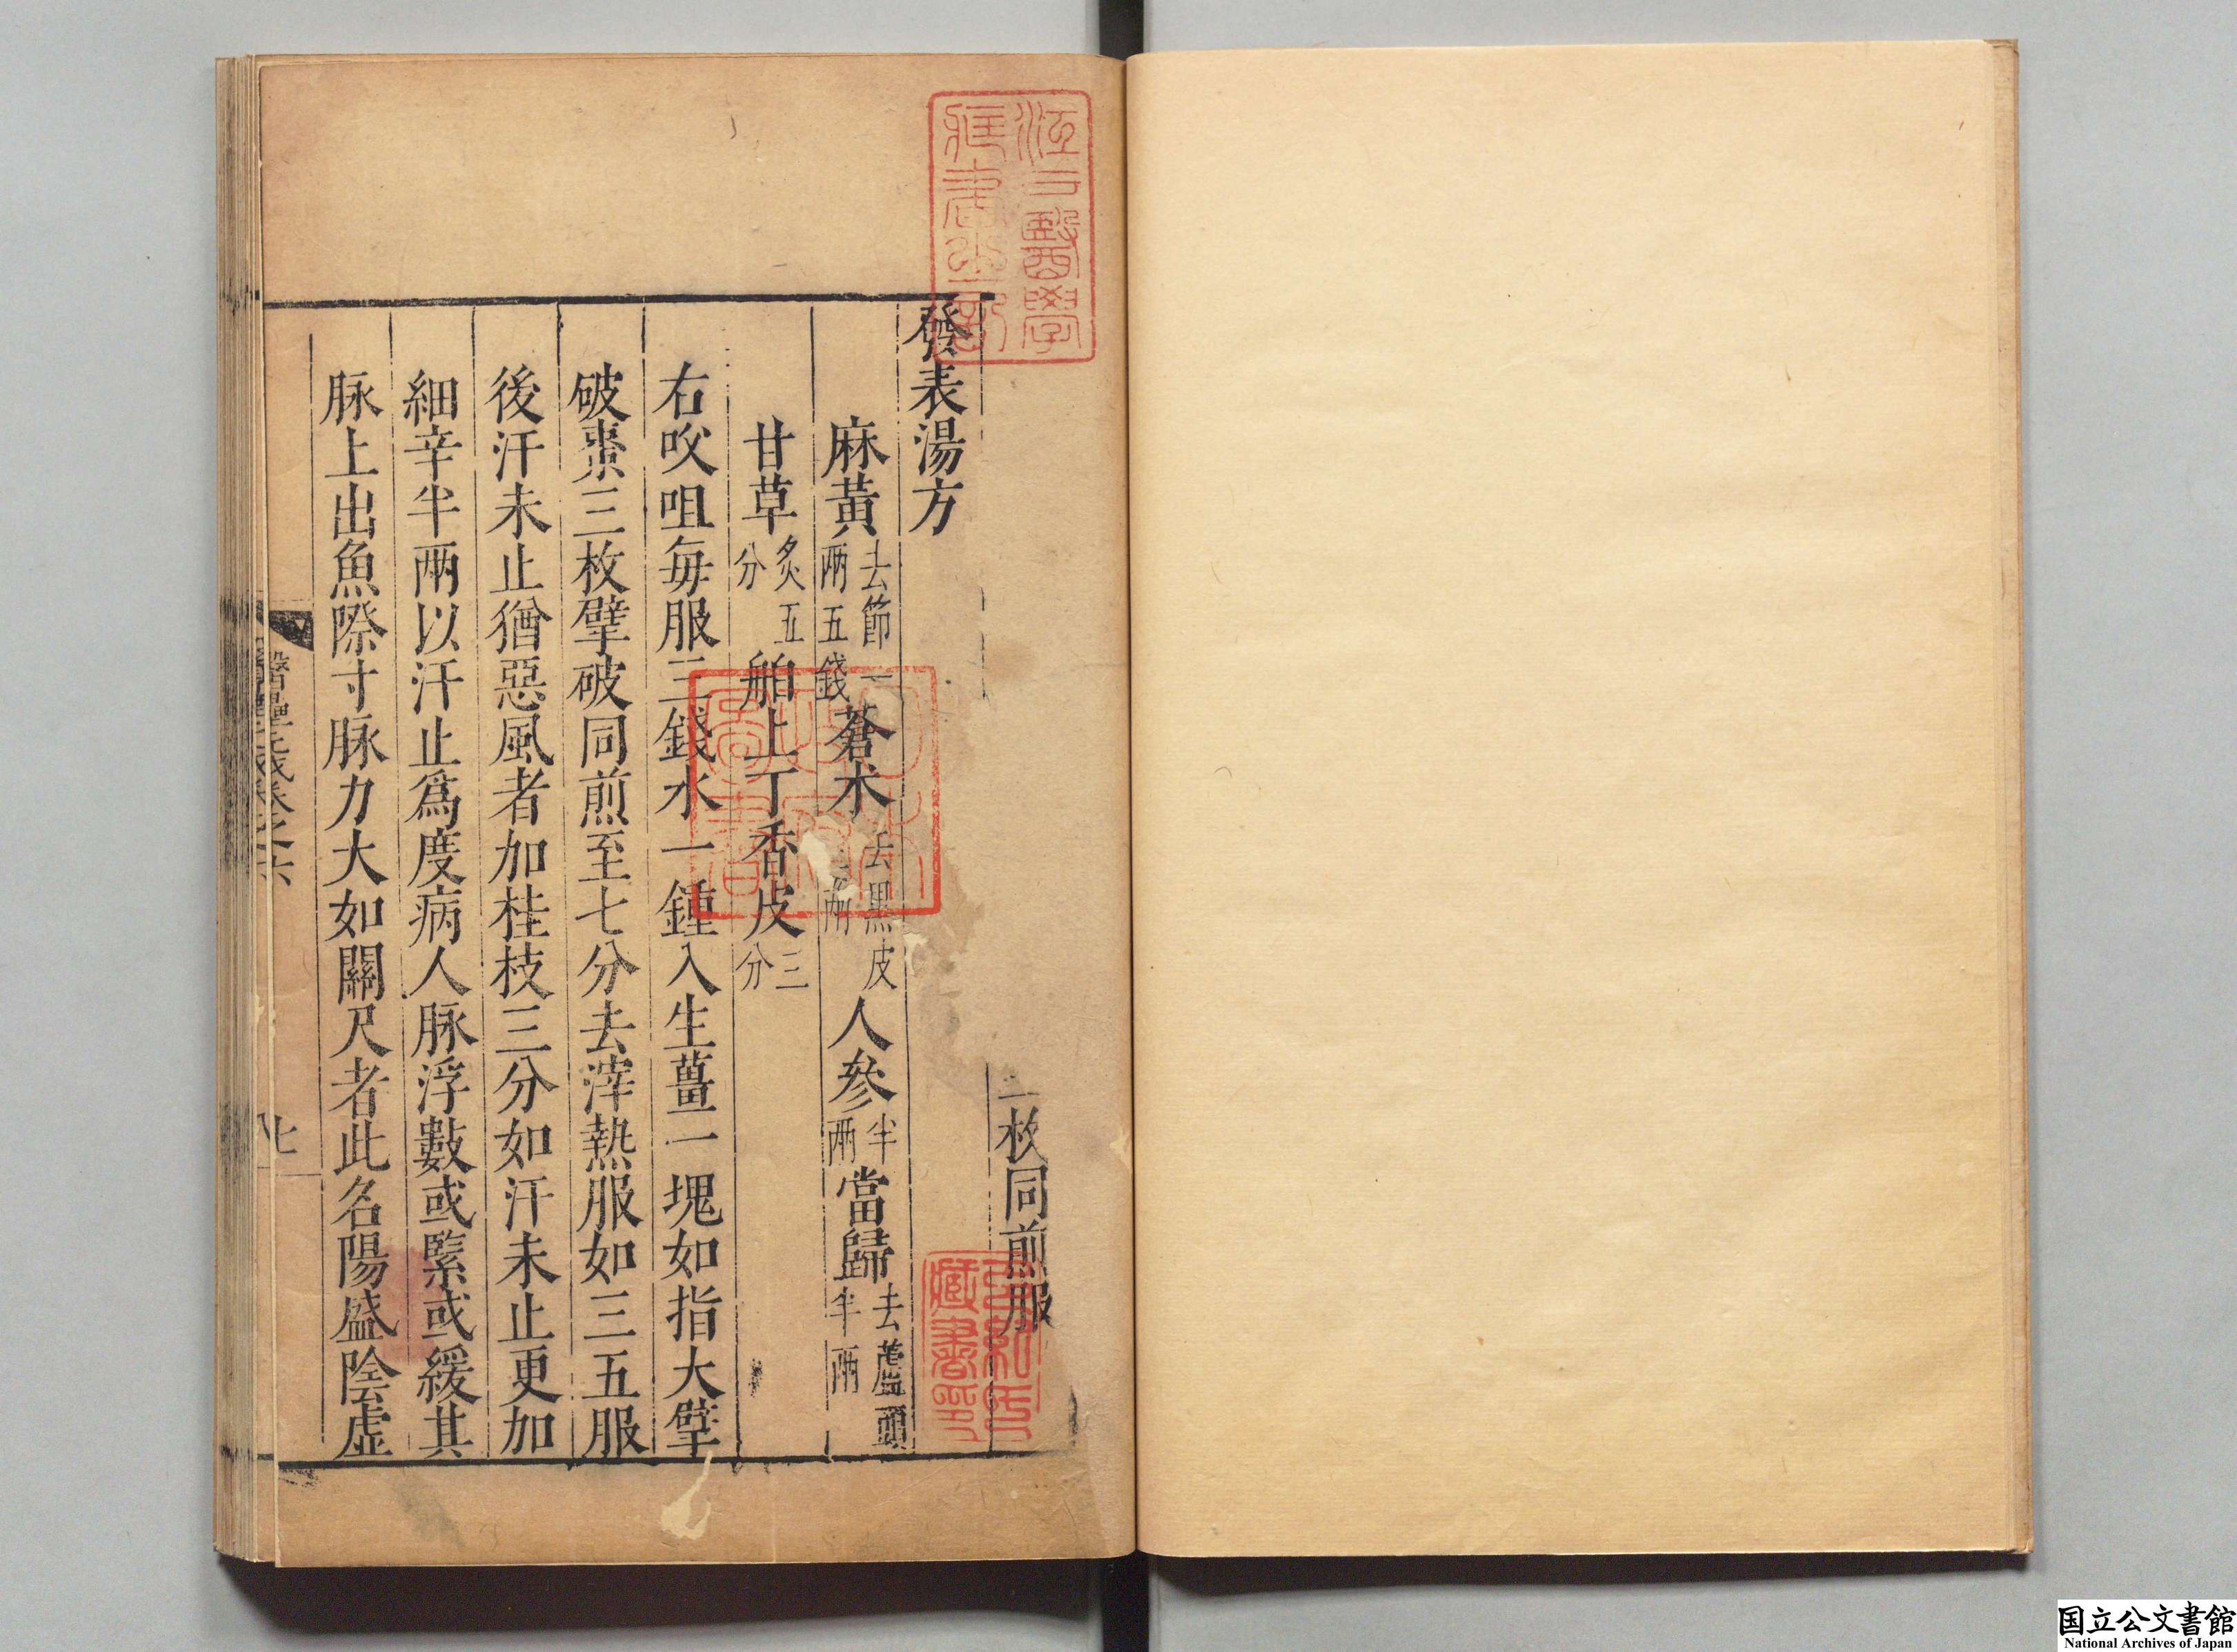 二枚同煎服
發表湯方
麻黃去節一兩五錢蒼朮去黑皮兩人參半兩當歸去蘆頭半兩
甘草炙五分舶上丁香皮三分
右㕮咀每服三錢水一鍾入生薑一塊如指大擘
破棗三枚擘破同煎至七分去滓熱服如三五服
後汗未止猶惡風者加桂枝三分如汗未止更加
細辛半兩以汗止爲度病人脉浮數或緊或緩其
脉上出魚際寸脉力大如關尺者此名陽盛陰虛
醫壘元戎卷之六
江戶醫學藏書之記
藏書印
国立公文書館
National Archives of Japan